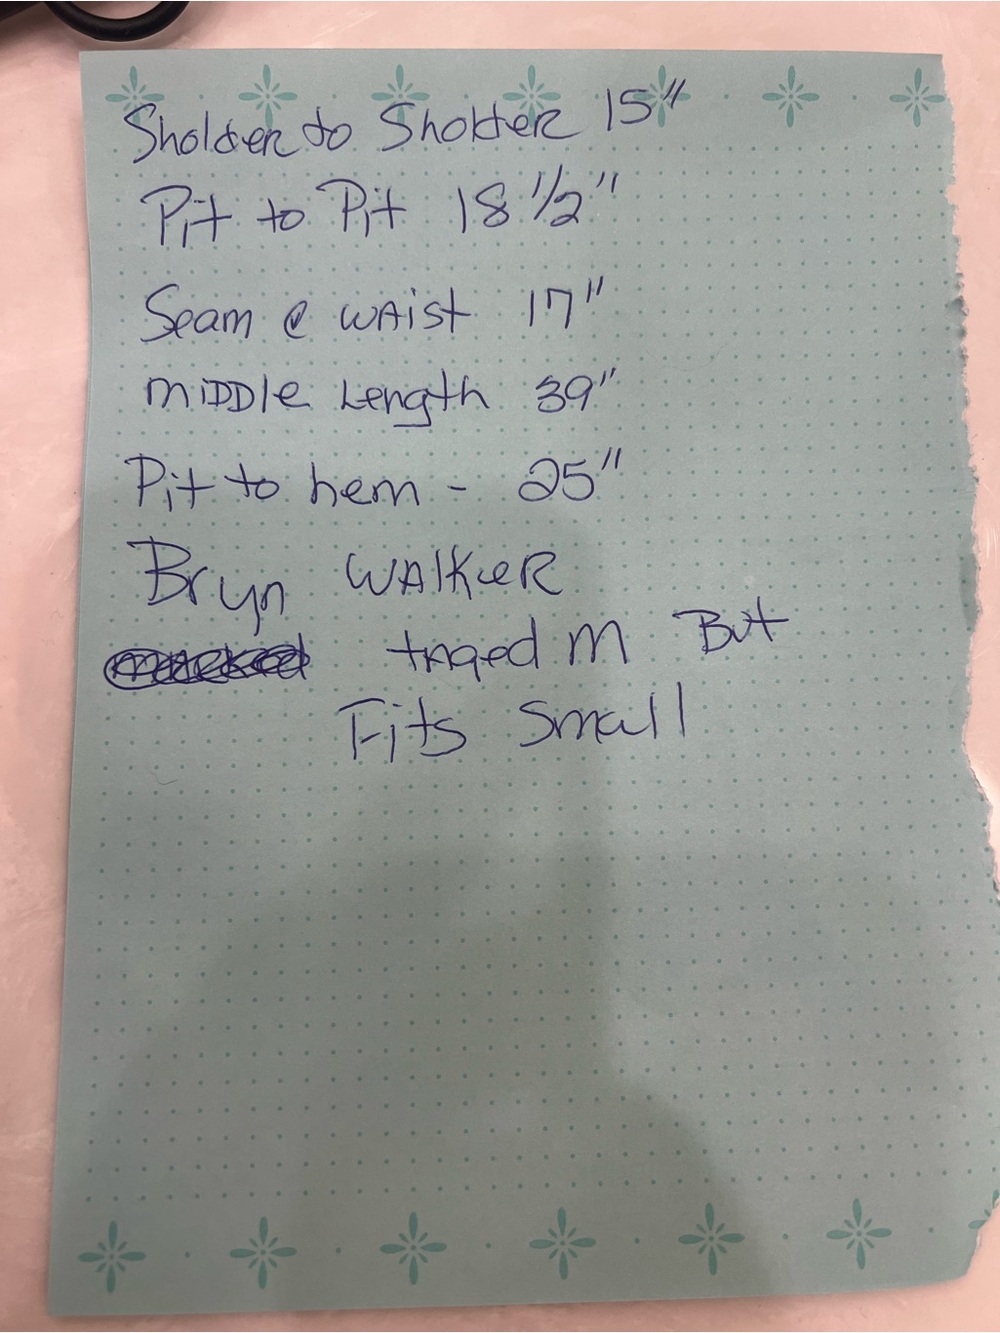 Sholder to Sholder 15"
Pit to Pit 18 1/2"
Seam @ WAIST 17"
MIDDle Length 39"
Pit to hem - 25"
Bryn WALKER
tAged M But
Fits Small